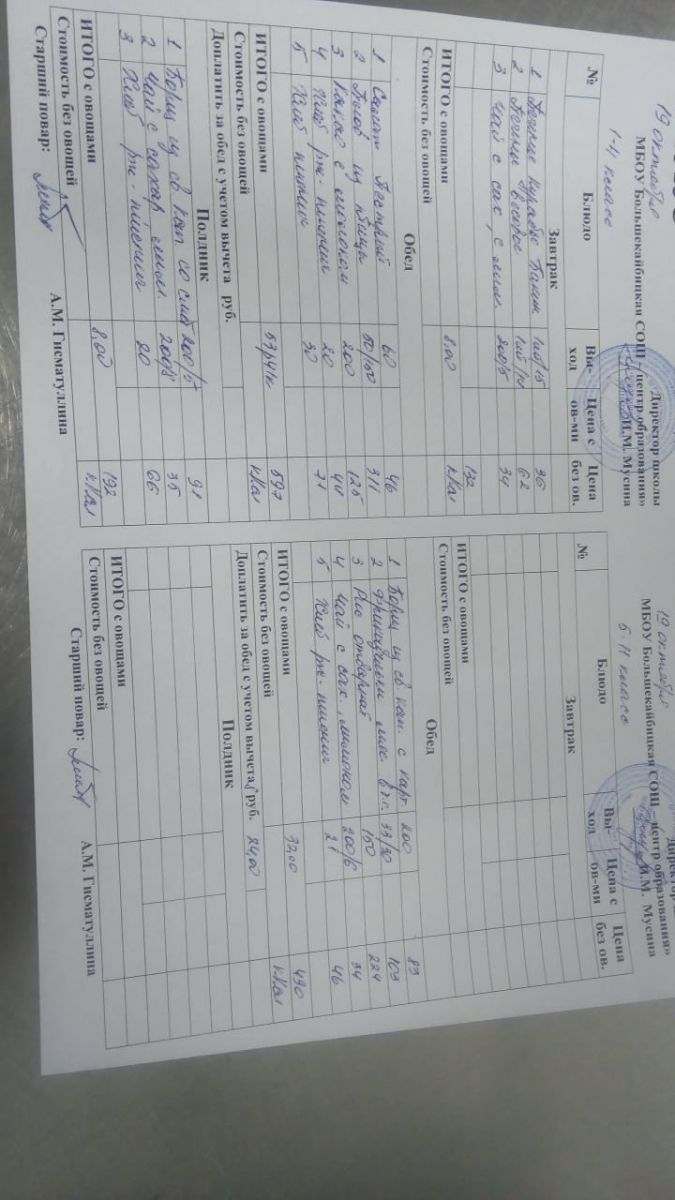 Директор школы
МБОУ Большекайбицкая СОШ – центр образования»
И.М. Мусина
19 октября
1-4 класс
№ Блюдо Вы-ход Цена с ов-ми Цена без ов.
Завтрак
1 Печенье 1шт/15 36
2 Печенье 62
3 Чай с сах, с 200/5 34
ИТОГО с овощами 8.00 132
Стоимость без овощей кКал
Обед
1 Салат Пестрый 60 46
2 Плов из птицы 50/150 311
3 Какао с молоком 200 125
4 Хлеб рж-пшенич 20 40
5 Хлеб пшенич 30 71
ИТОГО с овощами 597
Стоимость без овощей кКал
Доплатить за обед с учетом вычета руб.
Полдник
1 Борщ из св кап со смет 200/5 91
2 Чай с сахар 200/5 35
3 Хлеб рж-пшенич 20 66
ИТОГО с овощами 8,00 192
Стоимость без овощей кКал
Старший повар: А.М. Гисматуллина
Директор
МБОУ Большекайбицкая СОШ – центр образования»
И.М. Мусина
19 октября
5-11 класс
№ Блюдо Вы-ход Цена с ов-ми Цена без ов.
Завтрак
ИТОГО с овощами
Стоимость без овощей
Обед
1 Борщ из св кап. с карт 200 83
2 Фрикадельки 103
3 Рис отварной 150 224
4 Чай с сах. молоком 200/5 34
5 Хлеб рж-пшенич 21 46
ИТОГО с овощами 32,00 490
Стоимость без овощей кКал
Доплатить за обед с учетом вычета руб. 24,00
Полдник
ИТОГО с овощами
Стоимость без овощей
Старший повар: А.М. Гисматуллина